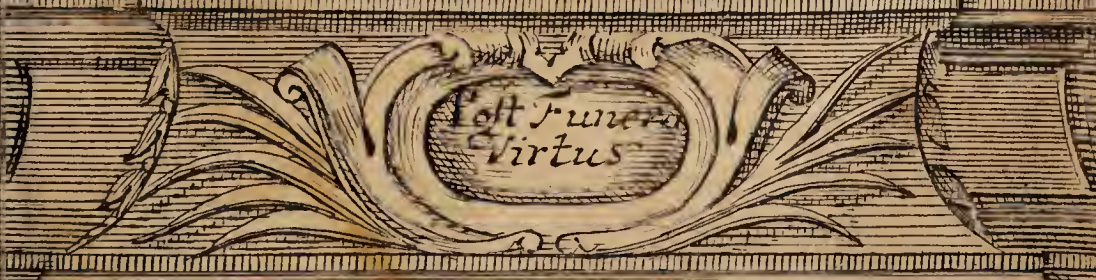 Post Funera
Virtus